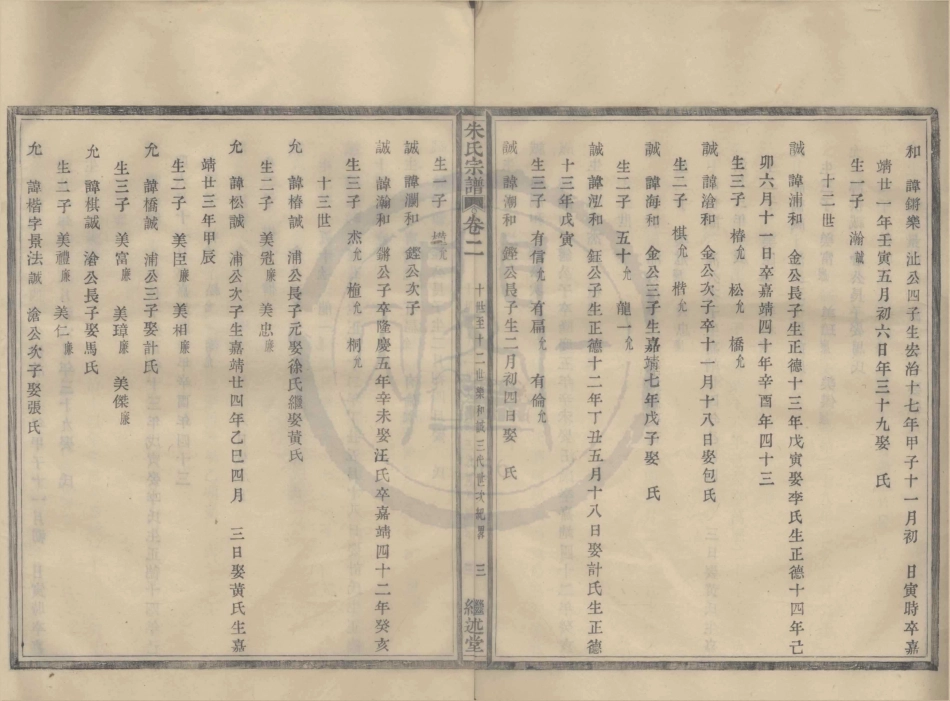 和　諱鏘樂　沚公四子生宏治十七年甲子十一月初　日寅時卒嘉
靖廿一年壬寅五月初六日年三十九娶　氏
生一子　瀚誠
十二世
誠　諱浦和　金公長子生正德十三年戊寅娶李氏生正德十四年己
卯六月十一日卒嘉靖四十年辛酉年四十三
生三子　椿允　松允　橋允
誠　諱滄和　金公次子卒十一月十八日娶包氏
生二子　棋允　楷允
誠　諱海和　金公三子生嘉靖七年戊子娶　氏
生二子　五十允　龍一允
誠　諱泓和　鈺公子生正德十二年丁丑五月十八日娶計氏生正德
十三年戊寅
生三子　有信允　有冨允　有倫允
誠　諱潮和　鏗公長子生二月初四日娶　氏
朱氏宗譜　卷二　十世至十二世樂和誠三代世次紀　三　繼述堂
生一子　允
誠　諱瀾和　鏗公次子
誠　諱瀚和　鏘公子卒隆慶五年辛未娶汪氏卒嘉靖四十二年癸亥
生三子　杰允　橦允　桐允
十三世
允　諱椿誠　浦公長子元娶徐氏繼娶黃氏
生二子　美冠廉　美忠廉
允　諱松誠　浦公次子生嘉靖廿四年乙巳四月　三日娶黃氏生嘉
靖廿三年甲辰
生二子　美臣廉　美相廉
允　諱橋誠　浦公三子娶計氏
生三子　美富廉　美璋廉　美傑廉
允　諱棋誠　滄公長子娶馬氏
生二子　美禮廉　美仁廉
允　諱楷字景法誠　滄公次子娶張氏